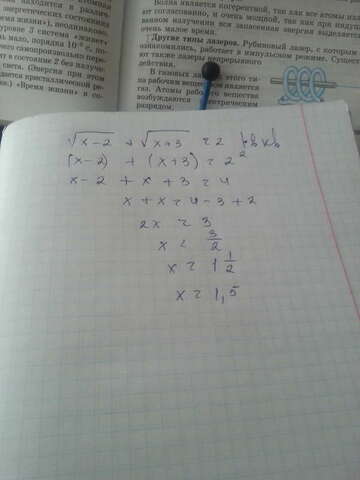 находится в
в различ-
энергетических состояниях
низм»), неодинаково,
уровне 3 система «живет»
мало, порядка 10⁻⁸ с,
самопроизвольно пере-
в состояние 2 без излуче-
света. (Энергия при этом
кристаллической ре-
«Время жизни» в со-
Волна является когерентной, так как все атомы
ют согласованно, и очень мощной, так как при
ванном излучении вся запасенная энергия выделяется
очень малое время.
Другие типы лазеров. Рубиновый лазер, с которым
ознакомились, работает в импульсном режиме. Сущест-
ют также лазеры непрерывного
действия.
В газовых лазерах этого ти-
па рабочим веществом является
газ. Атомы рабочего вещества
возбуждаются электрическим
разрядом.
√x-2 + √x+3 = 2
(x-2) + (x+3) = 2²
x-2 + x + 3 = 4
x + x = 4 - 3 + 2
2x = 3
x = 3/2
x = 1 1/2
x = 1,5